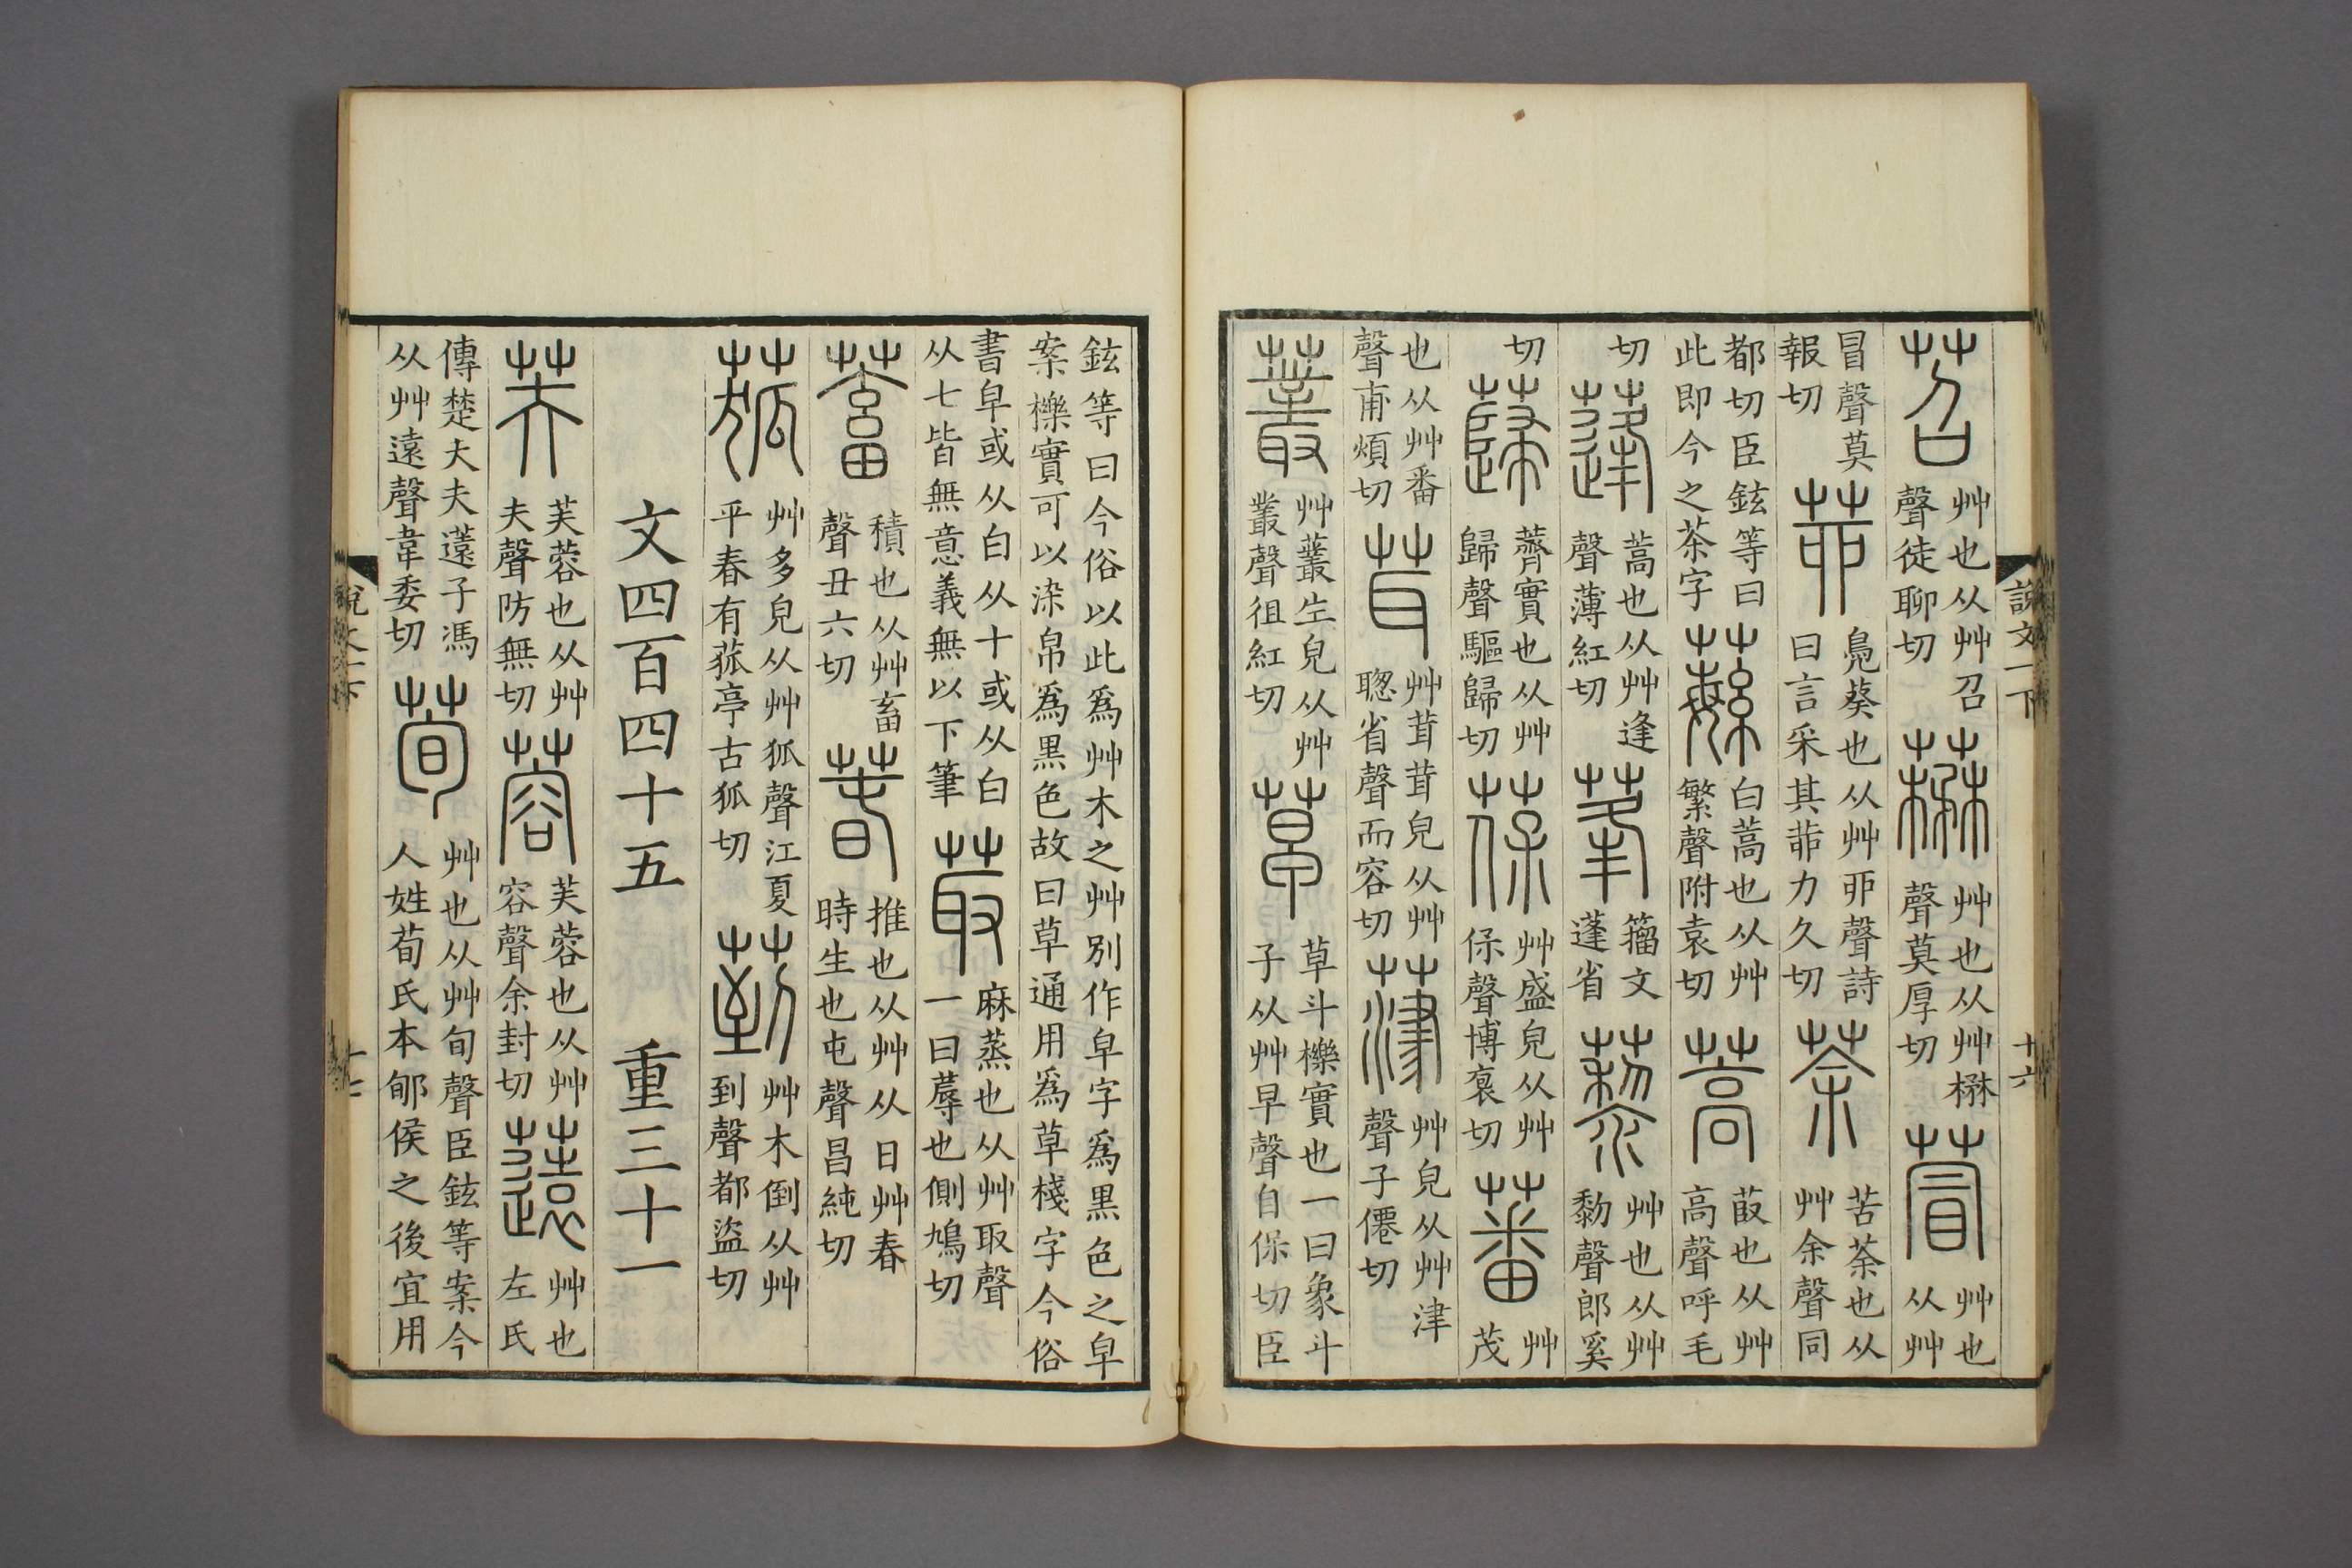 苕艸也从艸召聲徒聊切𦿔艸也从艸楙聲莫厚切萺艸也从艸
冒聲莫報切茆鳧葵也从艸丣聲詩曰言采其茆力久切荼苦荼也从艸余聲同
都切臣鉉等曰此即今之茶字蘩白蒿也从艸繁聲附袁切蒿菣也从艸高聲呼毛
切蓬蒿也从艸逢聲薄紅切莑籒文蓬省藜艸也从艸黎聲郎奚
切蘬薺實也从艸歸聲驅歸切葆艸盛皃从艸保聲博袌切蕃艸茂
也从艸番聲甫煩切茸艸茸茸皃从艸聦省聲而容切葏艸皃从艸津聲子僊切
叢艸叢生皃从艸叢聲徂紅切草草斗櫟實也一曰象斗子从艸早聲自保切臣
說文一下
十六
鉉等曰今俗以此爲艸木之艸別作皁字爲黑色之皁案櫟實可以染帛爲黑色故曰草通用爲草棧字今俗
書皁或从白从十或从白从七皆無意義無以下筆菆麻蒸也从艸取聲一曰蓐也側鳩切
蓄積也从艸畜聲丑六切萅推也从艸从日艸春時生也屯聲昌純切
菰艸多皃从艸狐聲江夏平春有菰亭古狐切菿艸木倒从艸到聲都盜切
文四百四十五 重三十一
芙芙蓉也从艸夫聲防無切蓉芙蓉也从艸容聲余封切薳艸也左氏
傳楚大夫薳子馮从艸遠聲韋委切荀艸也从艸旬聲臣鉉等案今人姓荀氏本郇侯之後宜用
說文一下
十七